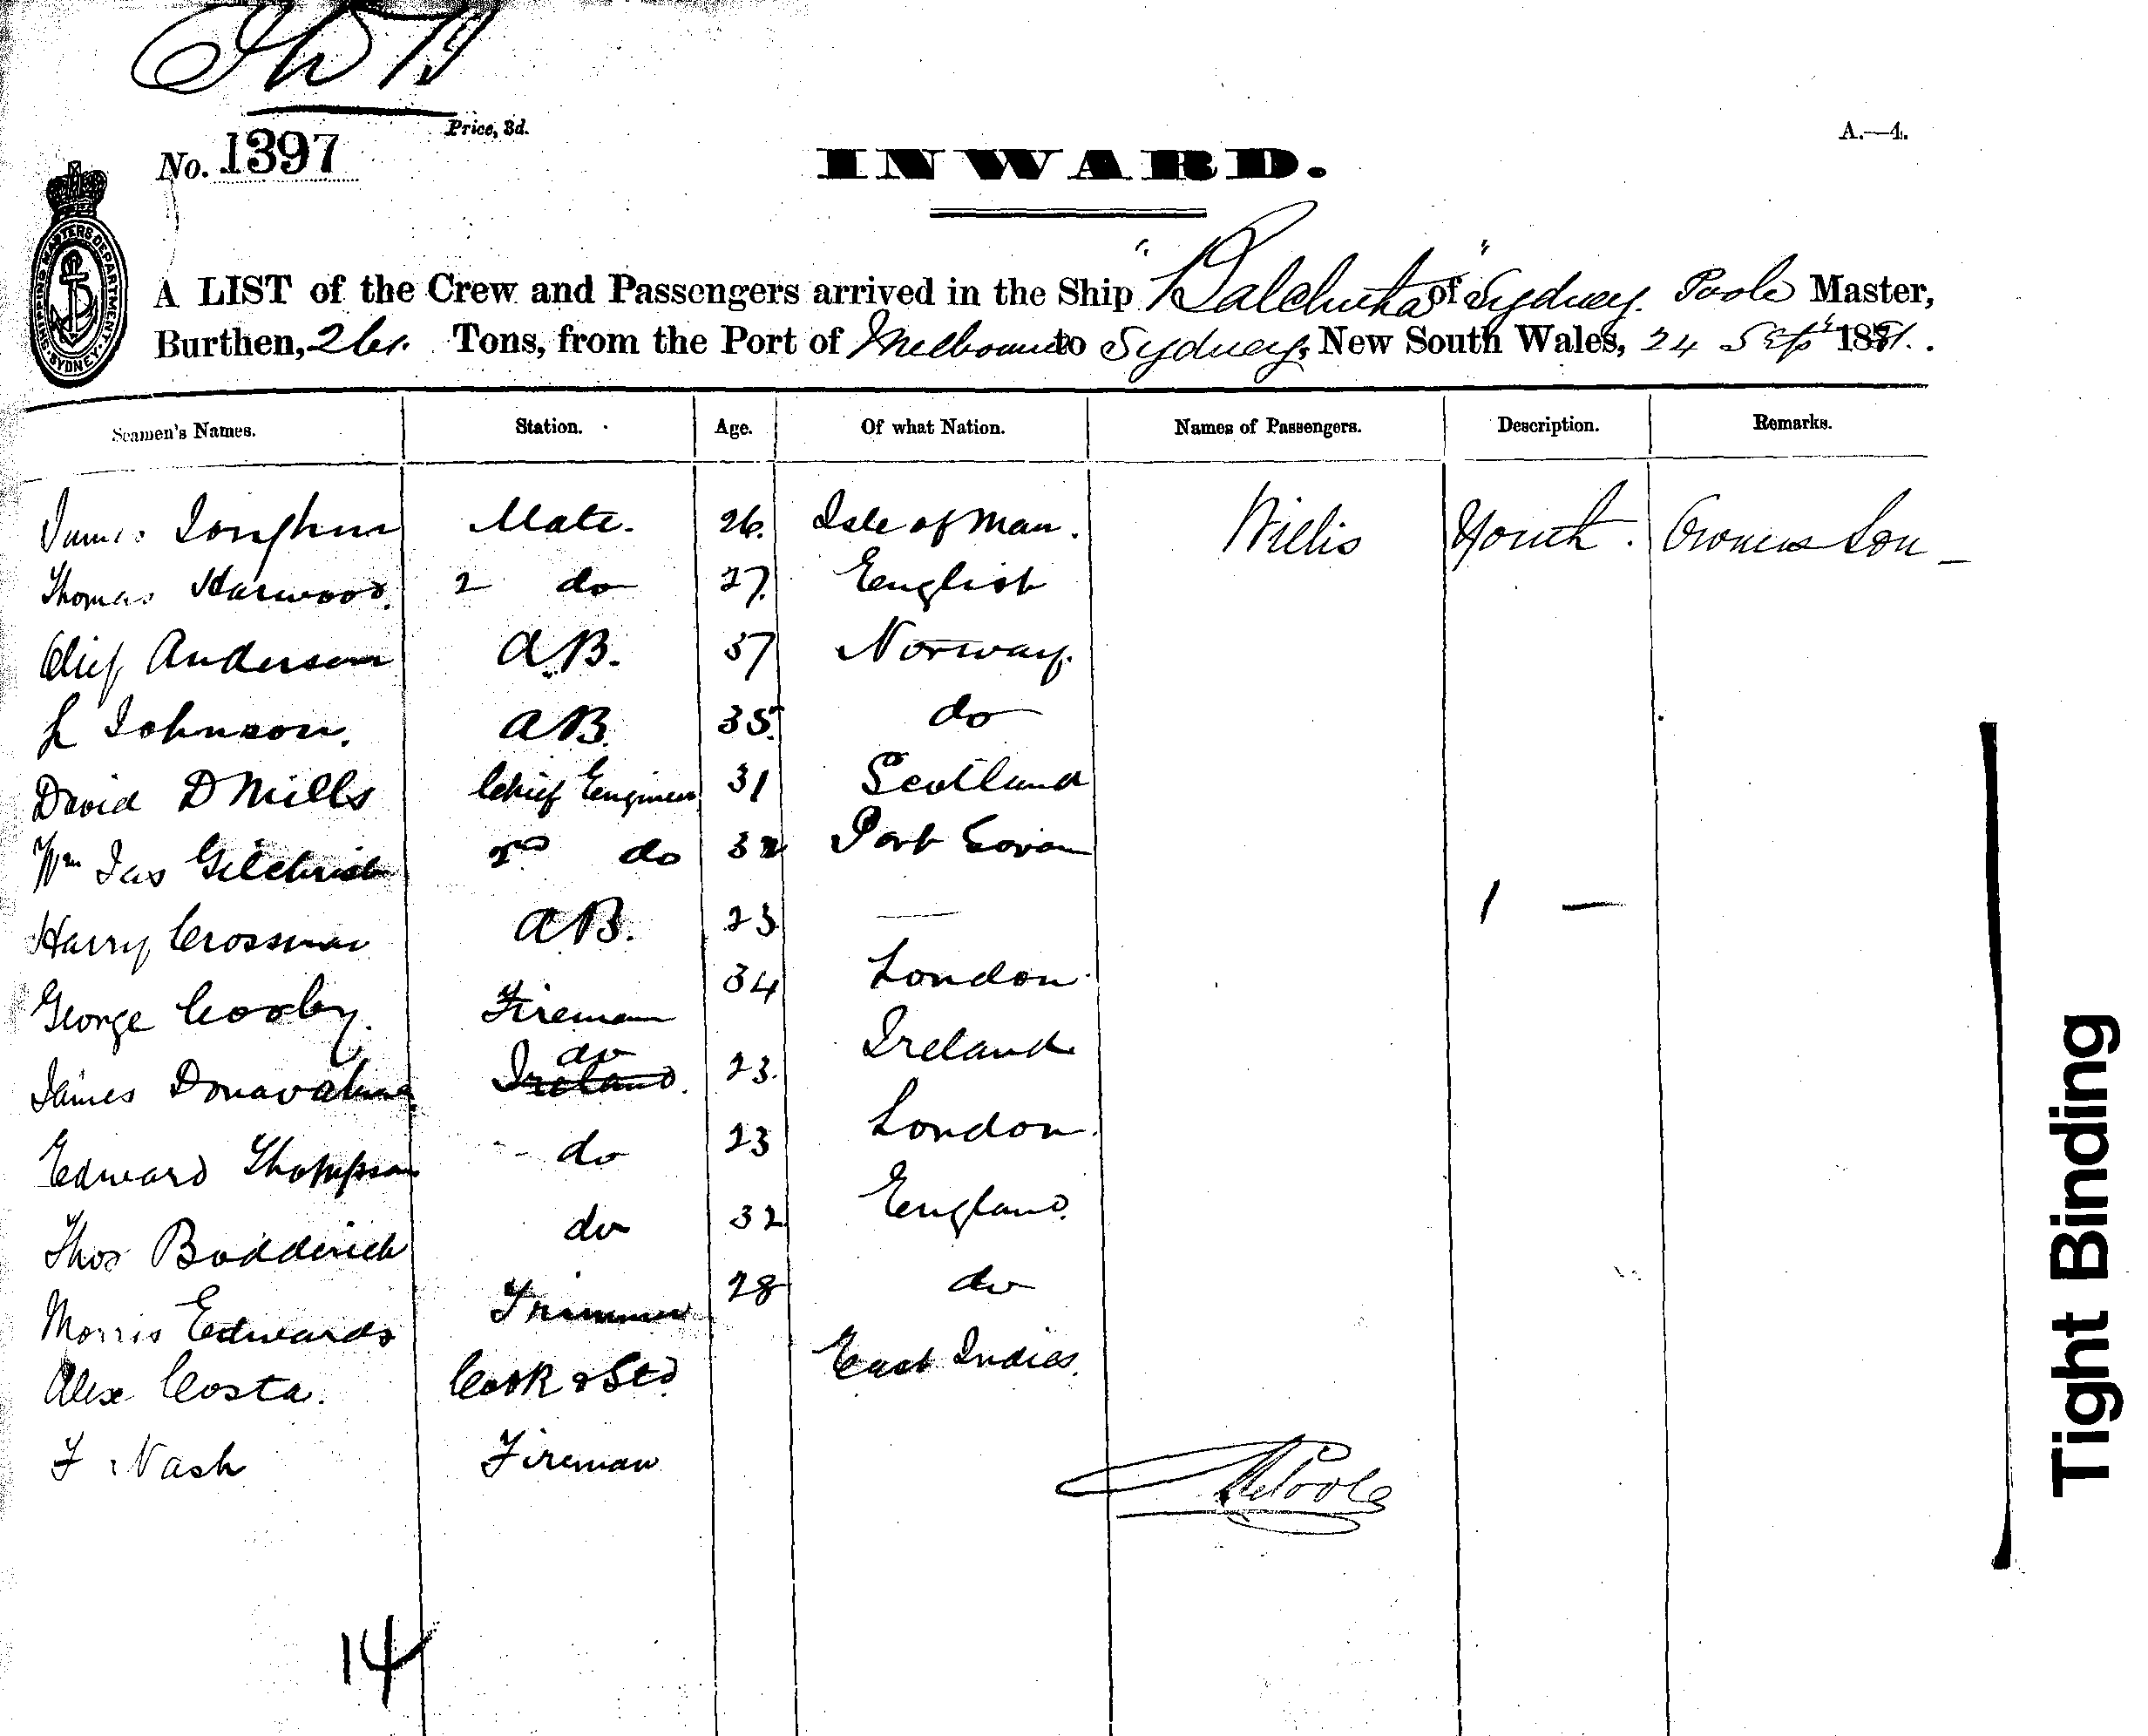 Price, 3d.
A.—4.
No. 1397
INWARD.
SHIPPING MASTERS DEPARTMENT. SYDNEY
A LIST of the Crew and Passengers arrived in the Ship "Balclutha" of Sydney. Poole Master,
Burthen, 261. Tons, from the Port of Melbourne to Sydney, New South Wales, 24 Sept 1881.
Seamen's Names. Station. Age. Of what Nation. Names of Passengers. Description. Remarks.
James Mate. 26. Isle of Man. Willis Youth. Owners Son
Thomas Harwood. 2 do 27. English
Olif Anderson A.B. 37 Norway.
L Johnson. A.B. 35. do
David D Mills Chief Engineer 31 Scotland
Wm Jas Gilchrist 2nd do 32 Port
Harry Crossman A.B. 23 — 1 —
George Cooby. Fireman 34 London
James Donavahue do Ireland. 23. Ireland
Edward Thompson do 23 London.
Thos Bodderich do 32 England.
Morris Edwards Trimmer 28 do
Alex Costa. Cook & Std East Indies.
F Nash Fireman
Poole
14
Tight Binding